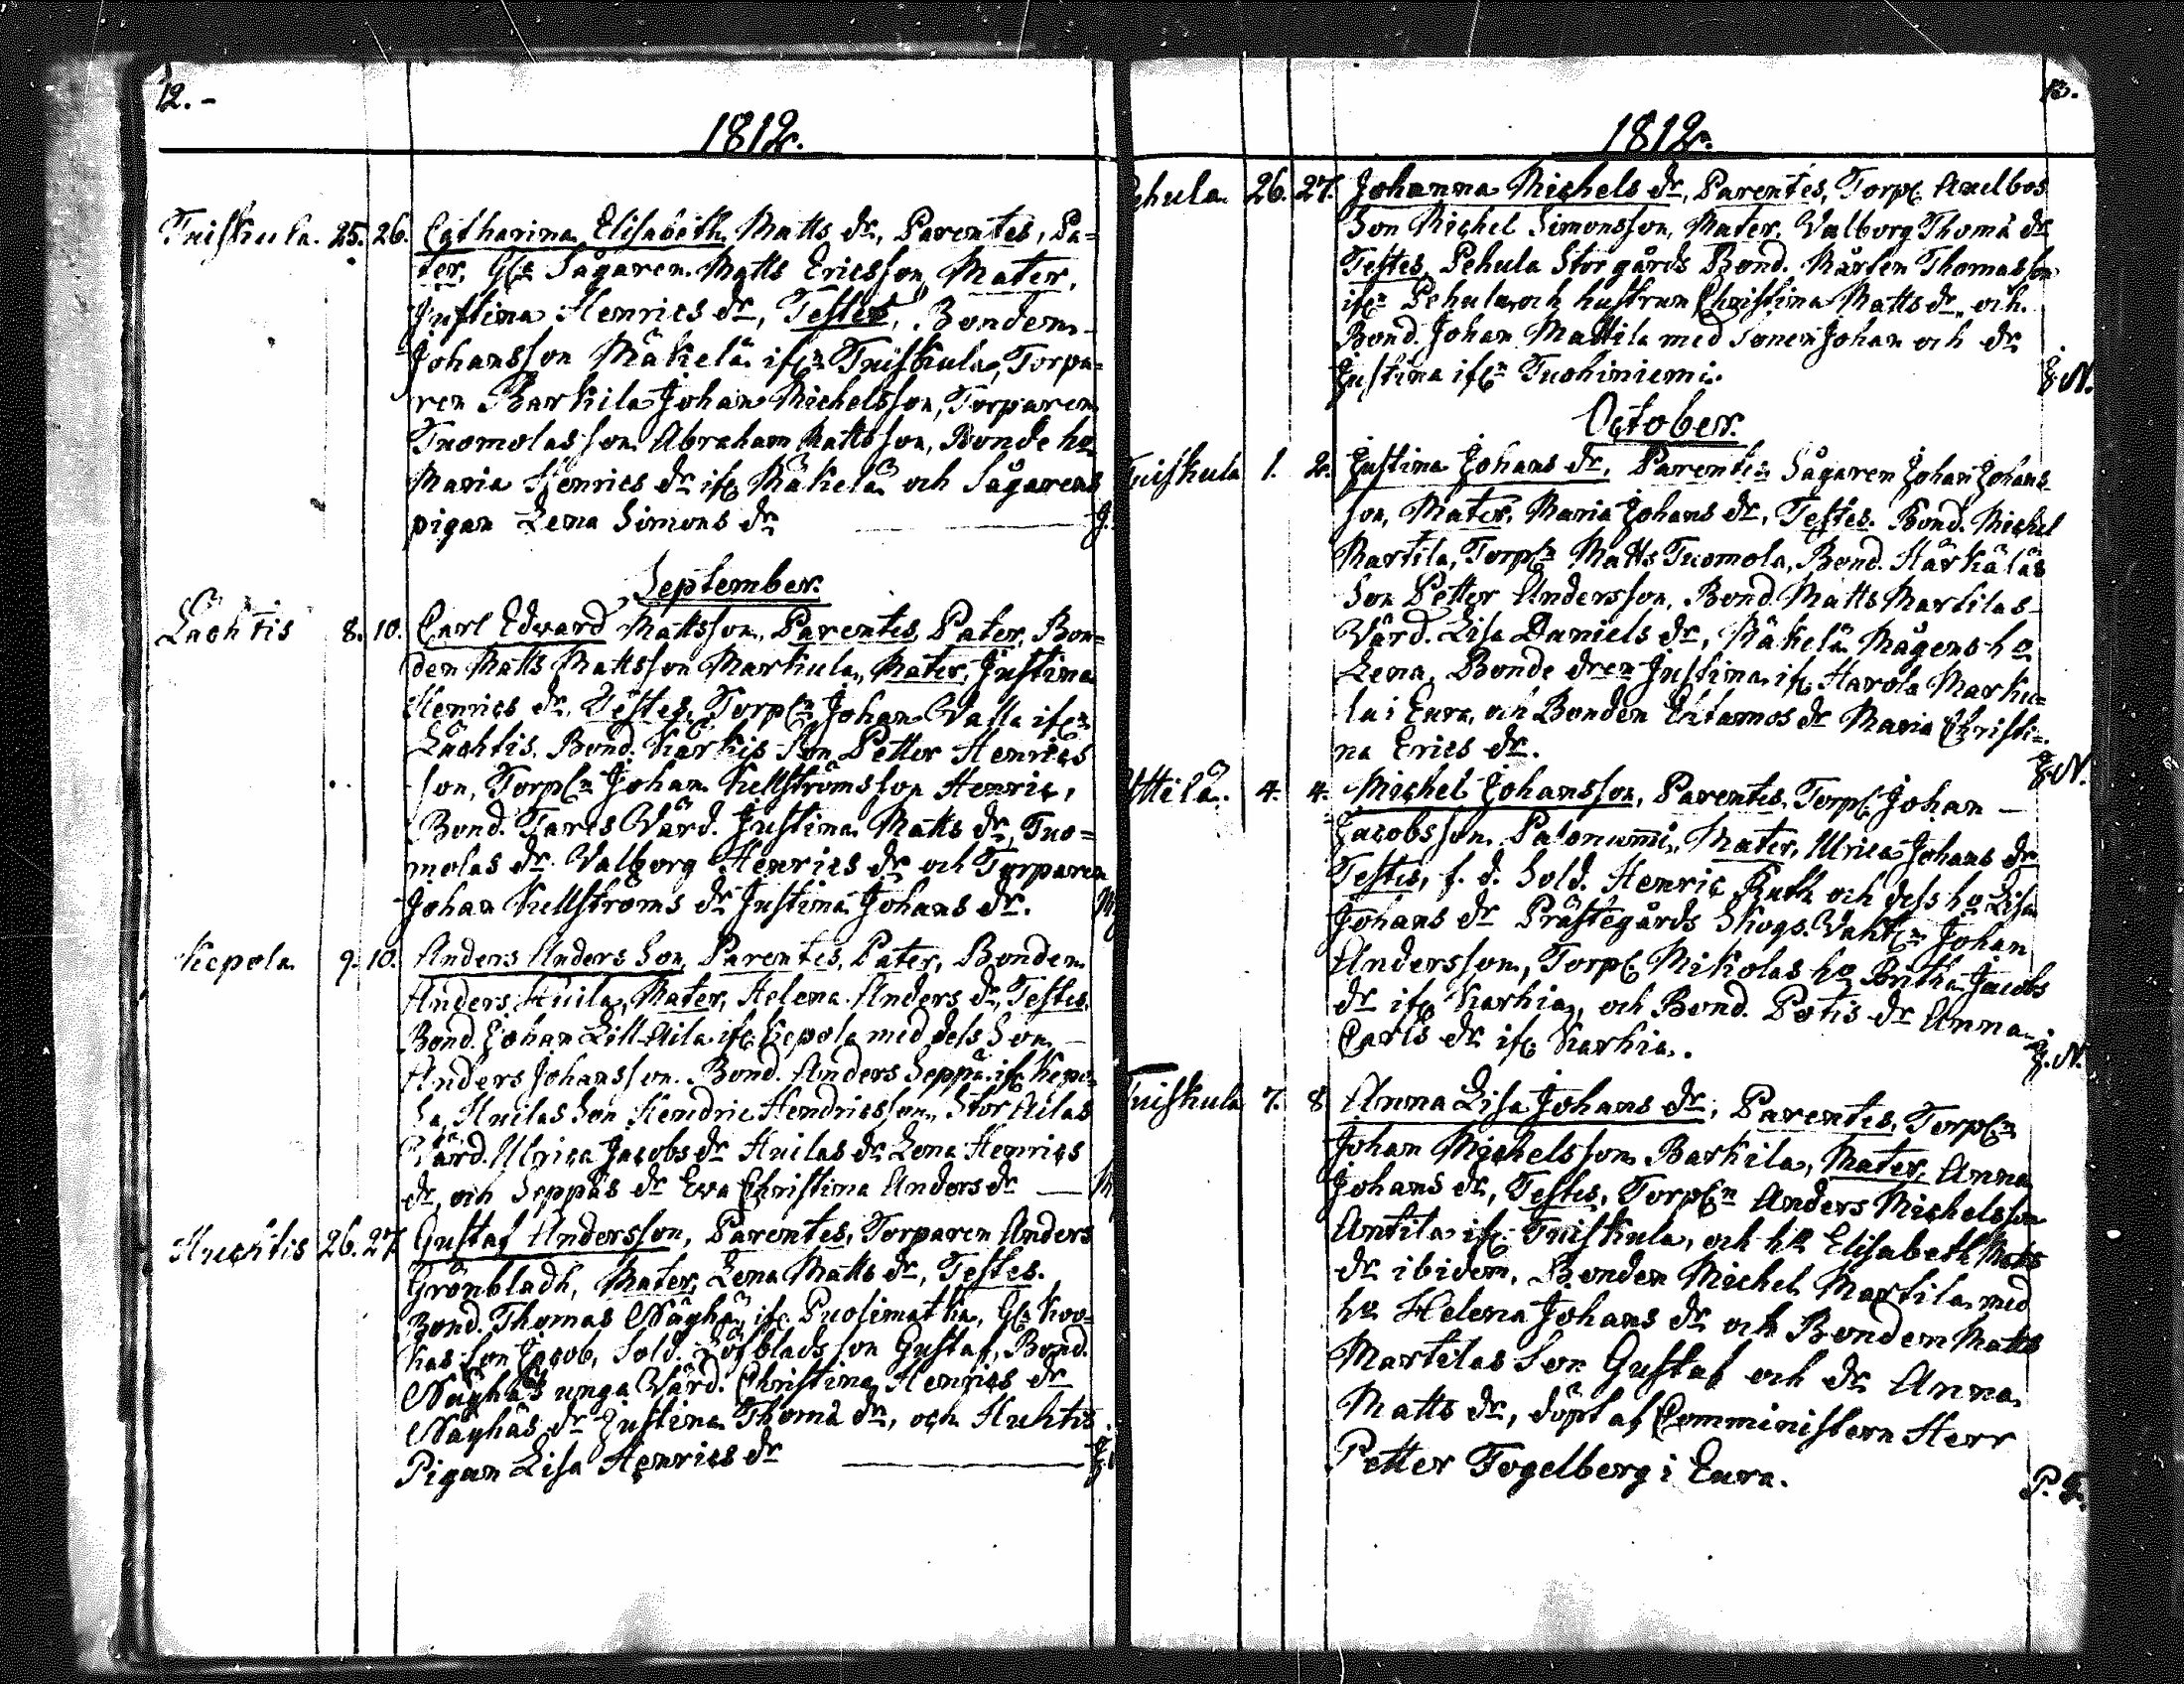 12. -
1812.
Tuiskula. 25. 26. Catharina Elisabeth Matts dr, Parentes, Pa=
ter, Sågaren Matts Ericsson, Mater,
Justina Henrics dr, Testes, Bonden
Johansson Mäkelä ifrn Tuiskula, Torpa=
ren Barkila Johan Michelsson, Torparen
Tuomolas son Abraham Mattsson, Bonde ho
Maria Henrics dr ifr Mäkelä och Sågarens
pigan Lena Simons dr
September.
Lachtis 8. 10. Carl Edvard Mattsson, Parentes, Pater, Bon=
den Matts Mattsson Markula, Mater, Justina
Henrics dr, Testes, Torprn Johan Valla ifrn
Lächtis. Bond. Kärkis Son Petter Henrics
son, Torprn Johan Kellströms son Henric,
Bond. Tares Värd. Justina Matts dr, Tuo=
molas dr Valborg Henrics dr och Torparen
Johan Kellströms dr Justina Johans dr.
Kepola 9. 10. Anders Anders Son, Parentes, Pater, Bonden
Anders Huila, Mater, Helena Anders dr, Testes.
Bond. Johan Lill Aila ifr Kepola med dess Son
Anders Johansson. Bond. Anders Seppä ifr Kepo=
la, Huilas Son Hendric Hendricsson, Stor Ailas
Värd. Ulrica Jacobs dr Huilas dr Lena Henrics
dr, och Seppäs dr Eva Christina Anders dr
Huchtis 26. 27 Gustaf Andersson, Parentes, Torparen Anders
Grönbladh, Mater, Lena Matts dr, Testes.
Bond. Thomas Näyhä, ifr Puolimatka, Koo=
kas son Jacob, Sold. Löfblads son Gustaf, Bond.
Näyhäs unga Värd. Christina Henrics dr
Näyhäs dr Justina Thoma dr, och Huhtis
Pigan Lisa Henrics dr
13.
1812.
Pehula 26. 27. Johanna Michels dr, Parentes, Torpr Axelbos
Son Michel Simonsson, Mater, Valborg Thoma dr
Testes, Pehula Storgårds Bond. Mårten Thomasson
ifrn Pehula, och hustrun Christina Matts dr, och
Bond. Johan Mattila med sonen Johan och dr
Justina ifrn Tuohiniemi. J. N.
October.
Tuiskula 1. 2. Justina Johans dr, Parentes Sågaren Johan Johans-
son, Mater, Maria Johans dr, Testes. Bond. Michel
Martila, Torprn Matts Tuomola, Bond. Härkäläs
Son Petter Andersson, Bond. Matts Martilas
Värd. Lisa Daniels dr, Mäkelä Mågens ho
Lena, Bonde dren Justina ifr Harola Marku=
la i Eura, och Bonden Ehtamos dr Maria Christi=
na Erics dr. J. N.
Uttila. 4. 4. Michel Johansson, Parentes, Torpr Johan
Jacobsson Palonummi, Mater, Ulrica Johans dr
Testes, f. d. Sold. Henric Ruth och dess ho Lisa
Johans dr Prästegårds Skogs. Vaktrn Johan
Andersson, Torpr Mikolas ho Britha Jacobs
dr ifr Karhia, och Bond. Potis dr Anna
Carls dr ifr Karhia. J. N.
Tuiskula 7. 8 Anna Lisa Johans dr, Parentes, Torprn
Johan Michelsson Barkila, Mater, Anna
Johans dr, Testes, Torprn Anders Michelsson
Antila ifr Tuiskula, och ho Elisabeth Matts
dr ibidem, Bonden Michel Martila med
ho Helena Johans dr och Bonden Matts
Martilas Son Gustaf och dr Anna
Matts dr, döpt af Comministern Herr
Petter Fogelberg i Eura.
P. F.